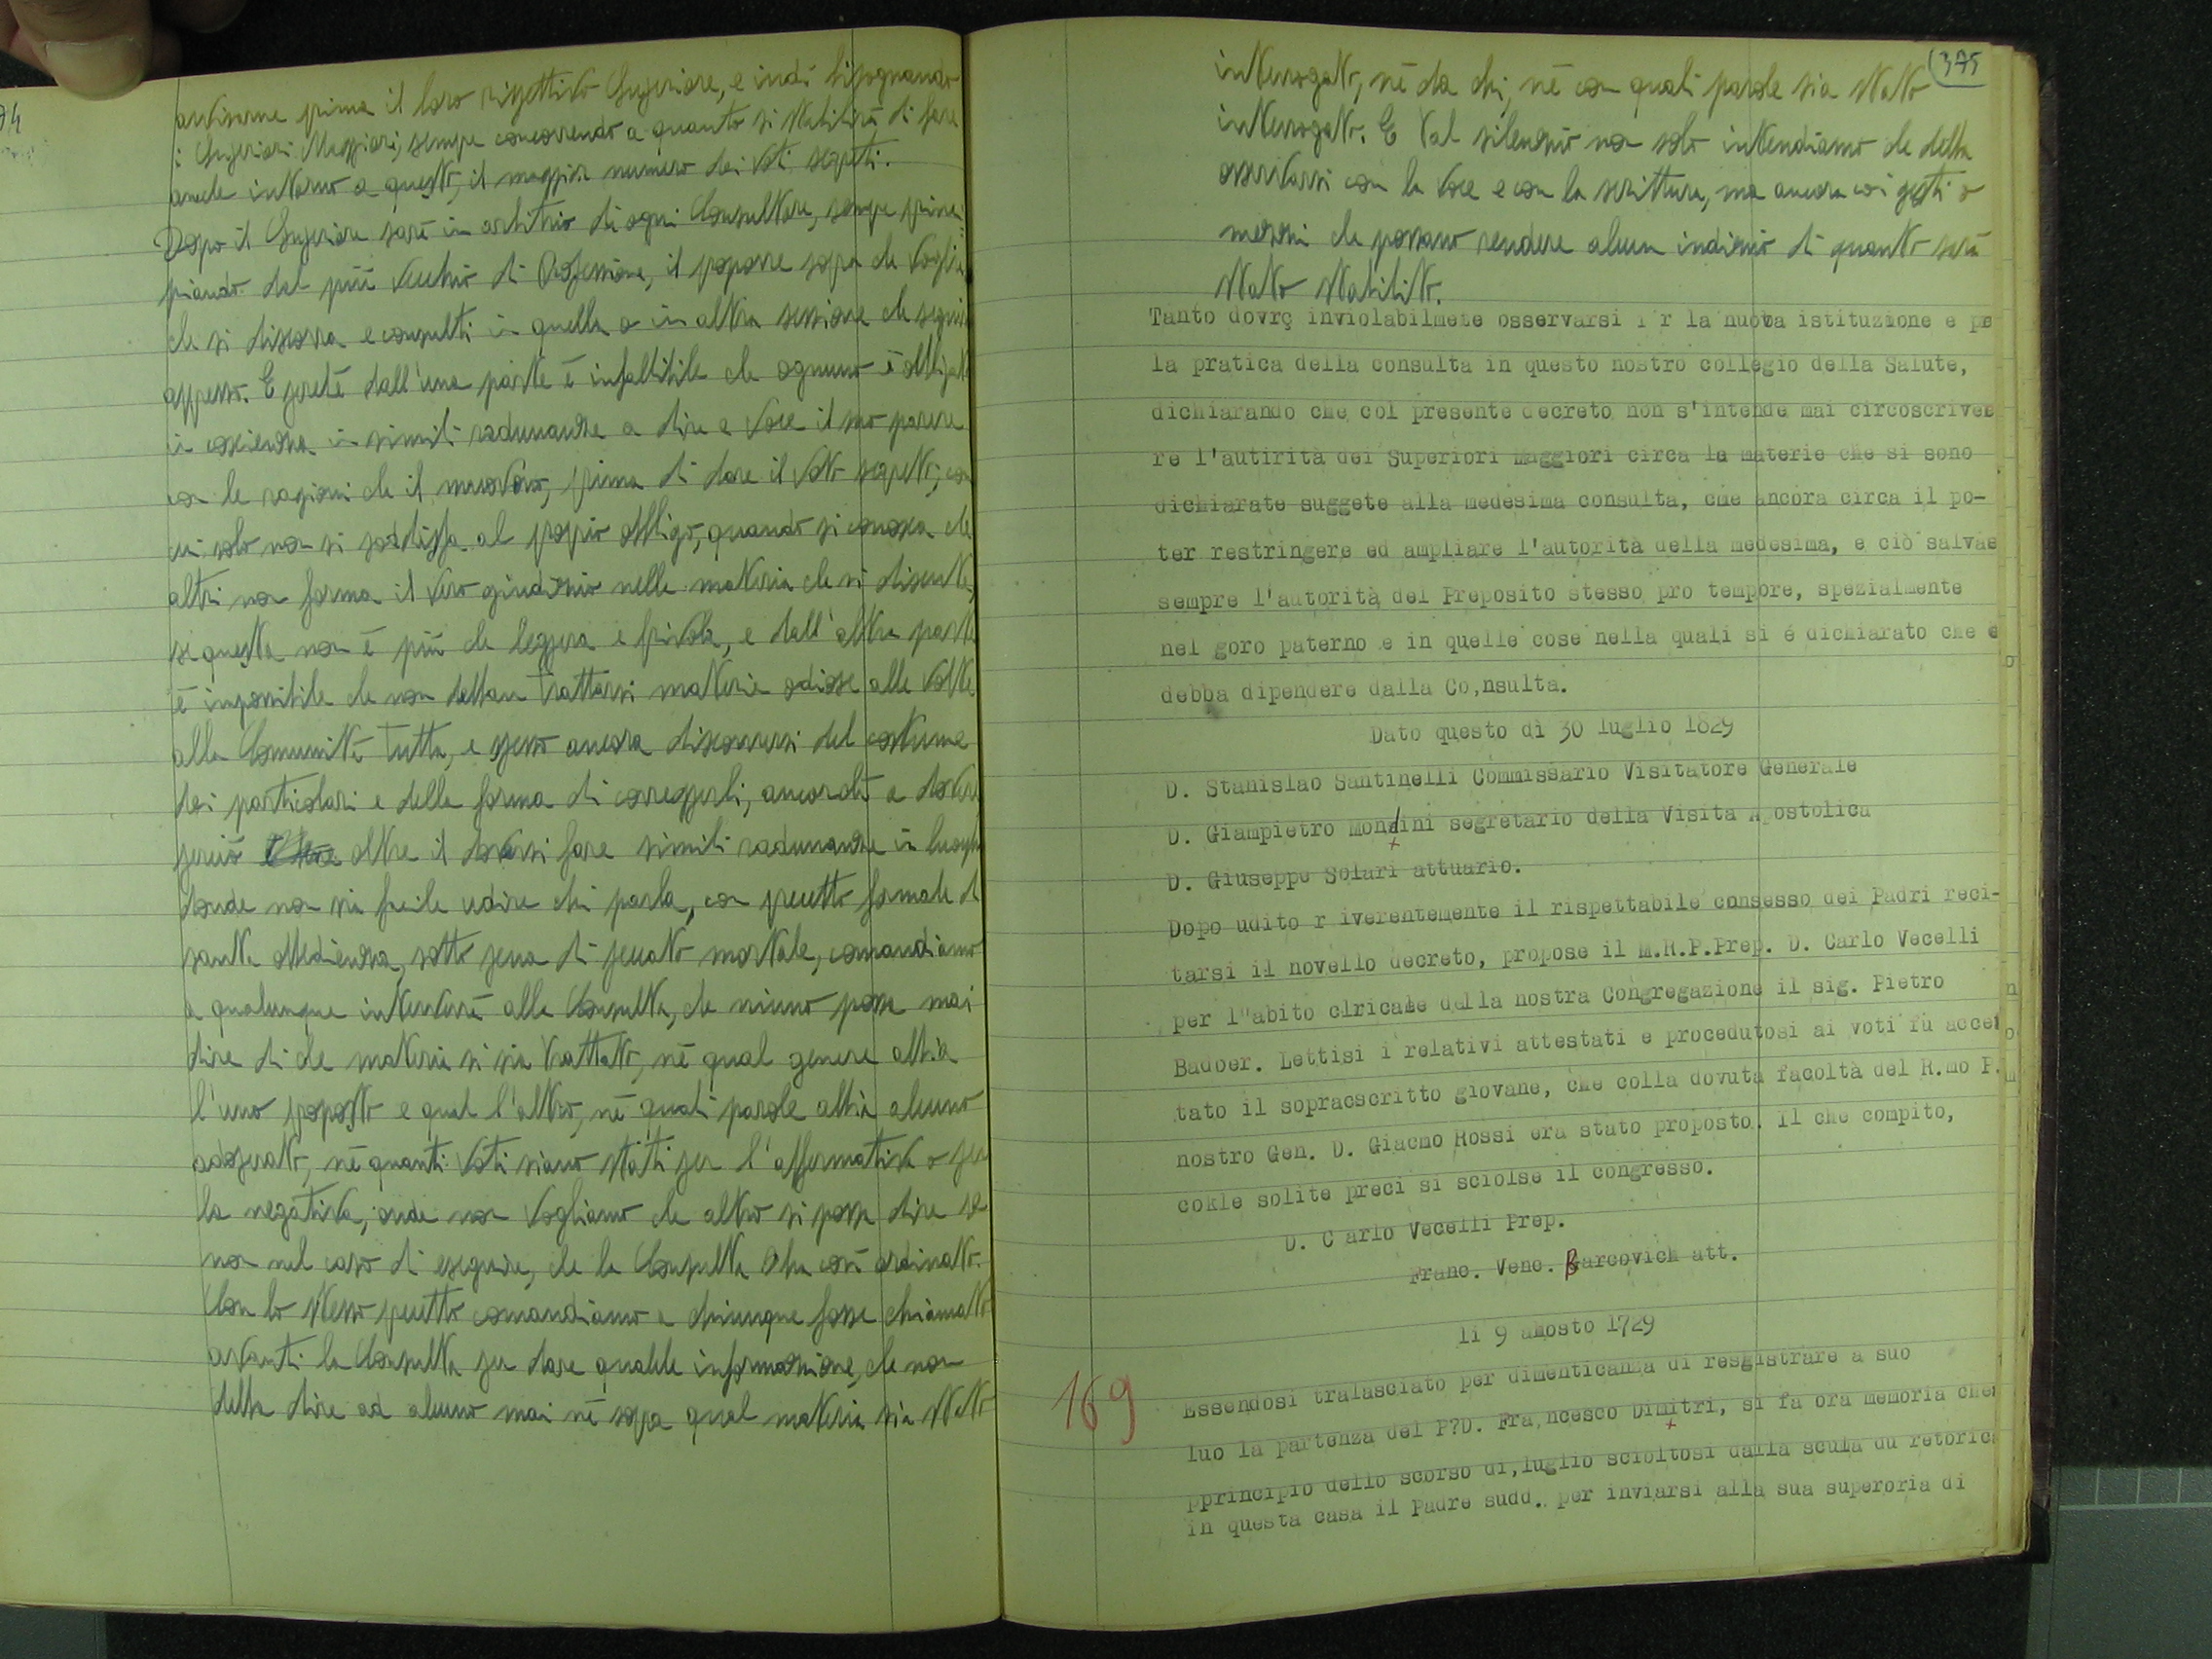 74
avvisarne prima il loro rispettivo Superiore, e indi bisognando
i Superiori Maggiori, sempre concorrendo a quanto si stabilirà di fare
anche intorno a questo, il maggior numero dei voti segreti.
Dopo il Superiore sarà in arbitrio di ogni Consultore, sempre princi
piando dal più vecchio di Professione, il proporre sopra che voglia
che si discorra e consulti in quella o in altra sessione che seguirà
appresso. E perché dall'una parte è infallibile che ognuno è obbligato
in coscienza in simili radunanze a dire a voce il suo parere
con le ragioni che il muovono, prima di dare il voto segreto, con
cui solo non si sodisfa al proprio obbligo, quando si conosca che
altri non forma il vero giudizio nella materia che si discute,
se questa non è più che leggera e frivola, e dall'altra parte
è impossibile che non debban trattarsi materie odiose alle volte
alla Comunità tutta, e spesso ancora discorrersi del costume
dei particolari e della forma di correggerli, ancorché a dovere
perciò oltre il doversi fare simili radunanze in luogo
donde non sia facile udire chi parla, con precetto formale di
santa obbedienza, sotto pena di peccato mortale, comandiamo
a qualunque interverrà alla Consulta, che niuno possa mai
dire di che materia si sia trattato, né qual genere abbia
l'uno proposto e qual l'altro, né quali parole abbia alcuno
adoperato, né quanti voti siano stati per l'affermativa o per
la negativa, onde non vogliamo che altro si possa dire se
non nel caso di eseguire, che la Consulta ha così ordinato.
Con lo stesso precetto comandiamo a chiunque fosse chiamato
avanti la Consulta per dare qualche informazione, che non
debba dire ad alcuno mai né sopra qual materia sia stato
375
interrogato, né da chi, né con quali parole sia stato
interrogato. E tal silenzio non solo intendiamo che debba
osservarsi con la voce e con la scrittura, ma ancora coi gesti o
mezzi che possano rendere alcun indizio di quanto sarà
stato stabilito.
Tanto dovrç inviolabilmete osservarsi i r la nuova istituzione e pe
la pratica della consulta in questo nostro collegio della Salute,
dichiarando che col presente decreto non s'intende mai circoscrive
re l'autirità dei Superiori Maggiori circa le materie che si sono
dichiarate suggete alla medesima consulta, che ancora circa il po-
ter restringere ed ampliare l'autorità della medesima, e ciò salvas
sempre l'autorità del Preposito stesso pro tempore, spezialmente
nel goro paterno e in quelle cose nella quali si é dichiarato che e
debba dipendere dalla Co,nsulta.
Dato questo dì 30 luglio 1829
D. Stanislao Santinelli Commissario Visitatore Generale
D. Giampietro Mondini segretario della Visita Apostolica
D. Giuseppe Solari attuario.
Dopo udito r iverentemente il rispettabile consesso dei Padri reci-
tarsi il novello decreto, propose il M.R.P.Prep. D. Carlo Vecelli
per l"abito clricale della nostra Congregazione il sig. Pietro
Badoer. Lettisi i relativi attestati e procedutosi ai voti fù accet
tato il sopracscritto giovane, che colla dovuta facoltà del R.mo P.
nostro Gen. D. Giacmo Rossi era stato proposto. Il che compito,
cokle solite preci si sciolse il congresso.
D. C arlo Vecelli Prep.
Franc. Venc. Barcovich att.
li 9 amosto 1729
169
Essendosi tralasciato per dimenticanza di resgistrare a suo
luo la partenza del P?D. Fra,ncesco Dimitri, si fa ora memoria che
pprincipio dello scorso di,luglio scioltosi dalla scula du retoric
in questa casa il Padre sudd. per inviarsi alla sua superoria di